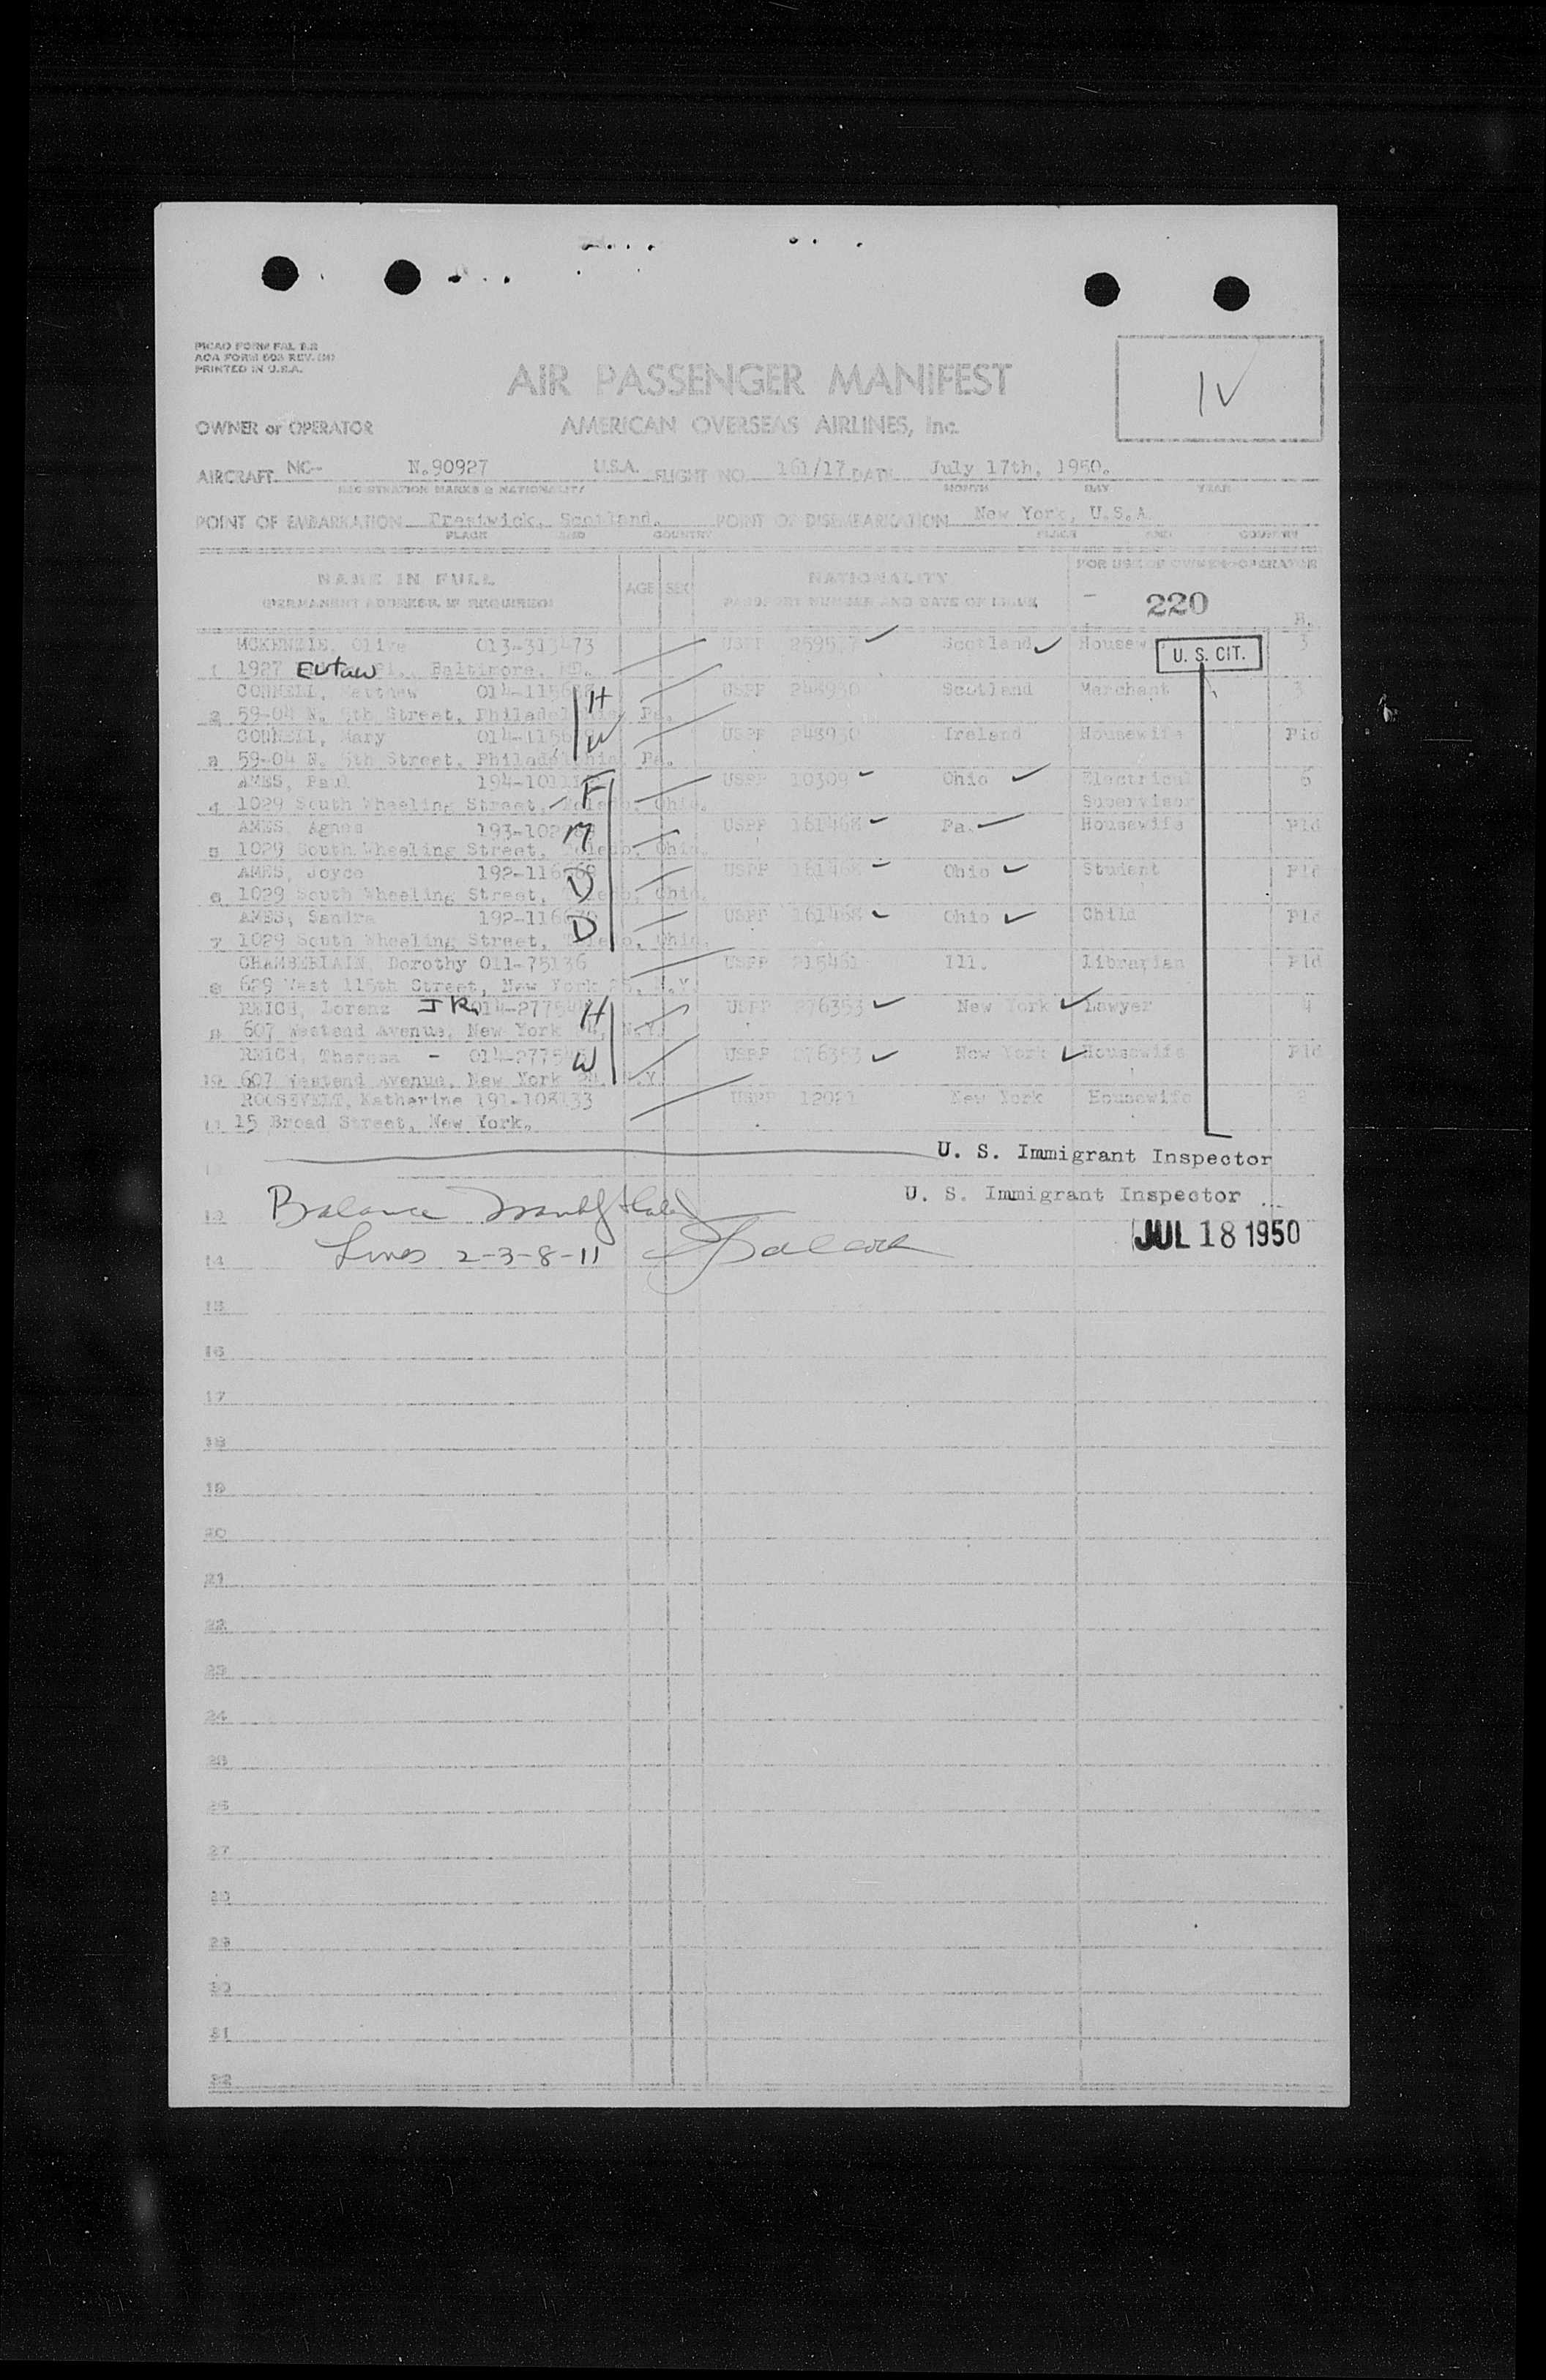 PICAO FORM FAL
ACA FORM REV.
PRINTED IN U.S.A.
IV
AIR PASSENGER MANIFEST
OWNER or OPERATOR AMERICAN OVERSEAS AIRLINES, Inc.
AIRCRAFT NC- N.90927 U.S.A. FLIGHT NO. 161/17 DATE July 17th, 1950.
REGISTRATION MARKS & NATIONALITY MONTH DAY YEAR
POINT OF EMBARKATION Prestwick, Scotland. POINT OF DISEMBARKATION New York, U.S.A.
PLACE AND COUNTRY PLACE AND COUNTRY
NAME IN FULL AGE SEX NATIONALITY FOR USE OF OWNER-OPERATOR
(PERMANENT ADDRESS, IF REQUIRED) PASSPORT NUMBER AND DATE OF ISSUE 220
MCKENZIE, Olive 013-313473 USPP Scotland Housew U. S. CIT. 3
1 1927 Eutaw Pl., Baltimore, MD.
CONNELL, Matthew USPP 248930 Scotland Merchant
2 59-04 N. 5th Street, Philadelphia, Pa.
CONNELL, Mary USPP 248930 Ireland Housewife Pld
3 59-04 N. 5th Street, Philadelphia, Pa.
H
W
AMES, Paul USPP 10309 Ohio Electrical 6
4 1029 South Wheeling Street, Toledo, Ohio. Supervisor
F
AMES, Agnes USPP 161468 Pa. Housewife Pld
5 1029 South Wheeling Street, Toledo, Ohio.
M
AMES, Joyce USPP 161468 Ohio Student Pld
6 1029 South Wheeling Street, Toledo, Ohio.
D
AMES, Sandra USPP 161468 Ohio Child Pld
7 1029 South Wheeling Street, Toledo, Ohio.
D
CHAMBERLAIN, Dorothy 011-75136 USPP 215461 Ill. Librarian Pld
8 629 West 115th Street, New York 25, N.Y.
REICH, Lorenz JR. USPP 276353 New York Lawyer 4
9 607 Westend Avenue, New York 24, N.Y.
H
REICH, Theresa - USPP 276353 New York Housewife Pld
10 607 Westend Avenue, New York 24, N.Y.
W
ROOSEVELT, Katherine 191-108133 USPP 12021 New York Housewife
11 15 Broad Street, New York.
12 U. S. Immigrant Inspector
U. S. Immigrant Inspector
13 Balance
JUL 18 1950
14 Lines 2-3-8-11
15
16
17
18
19
20
21
22
23
24
25
26
27
28
29
30
31
32